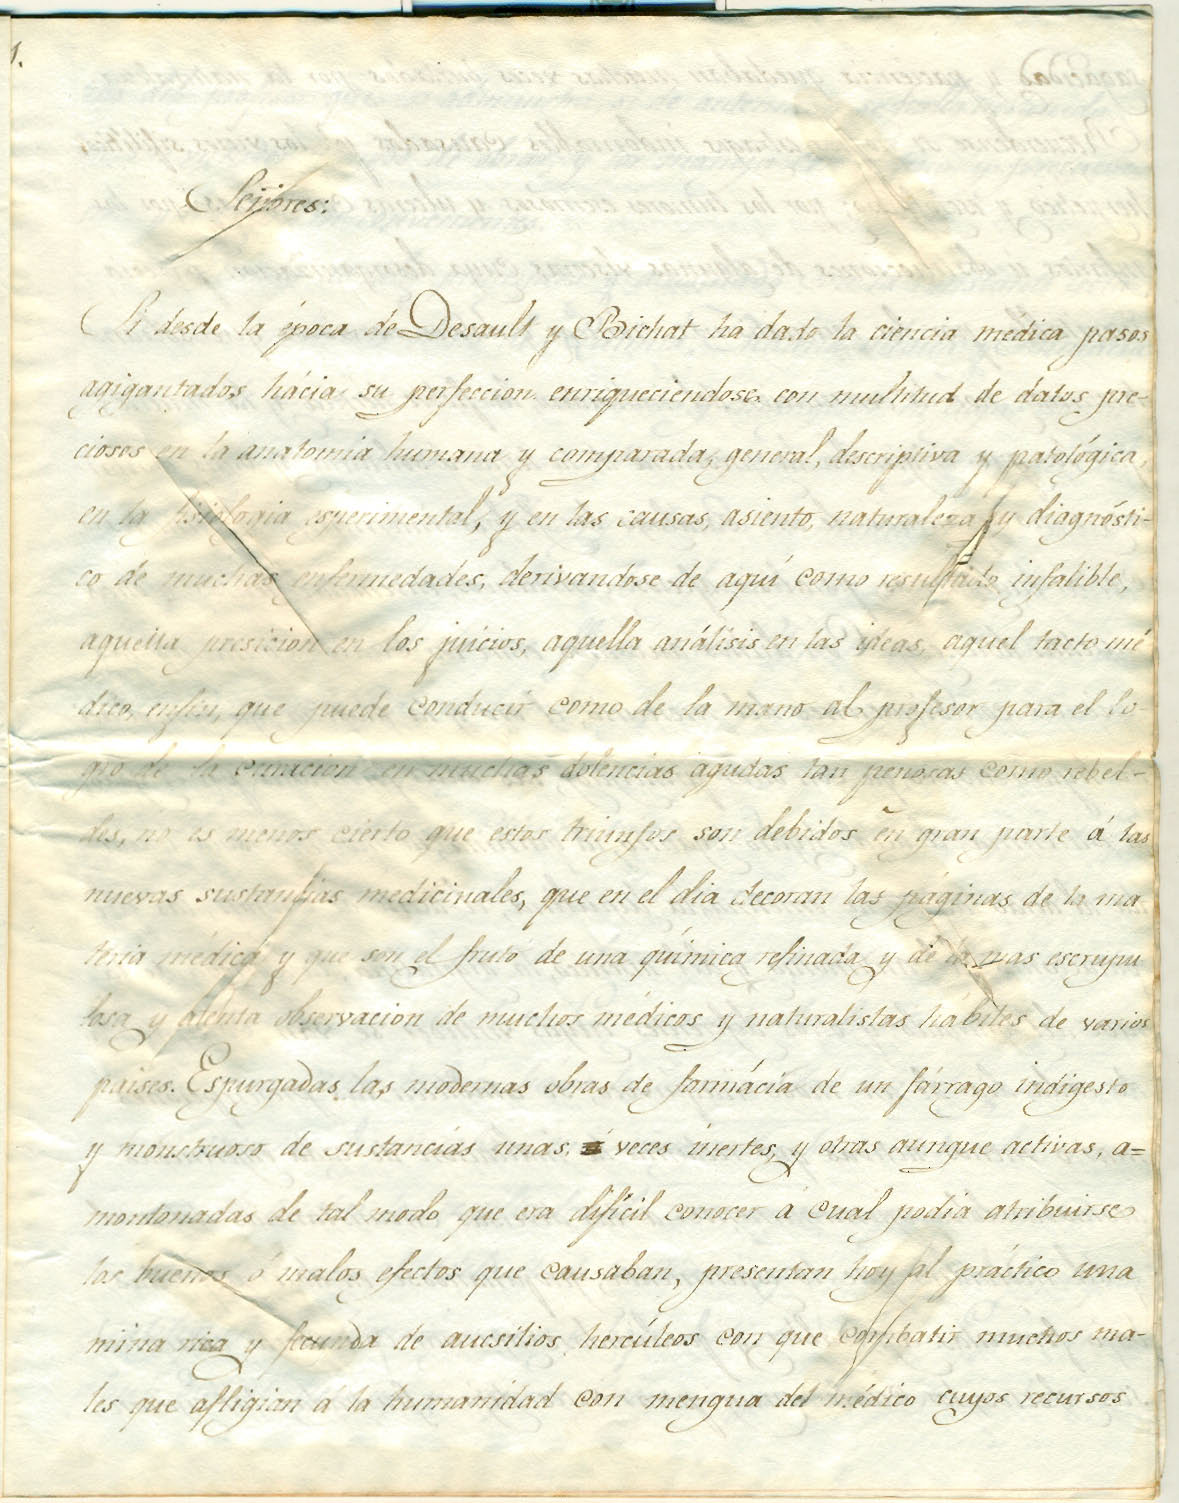 1.
Señores:
Si desde la época de Desault y Bichat ha dado la ciencia médica pasos
agigantados hácia su perfeccion enriqueciendose con multitud de datos pre-
ciosos en la anatomia humana y comparada, general, descriptiva y patológica,
en la fisiologia esperimental, y en las causas, asiento, naturaleza y diagnósti-
co de muchas enfermedades, derivandose de aquí como resultado infalible,
aquella presicion en los juicios, aquella análisis en las ideas, aquel tacto mé
dico, enfin, que puede conducir como de la mano al profesor para el lo-
gro de la curacion en muchas dolencias agudas tan penosas como rebel-
des, no es menos cierto que estos triunfos son debidos en gran parte á las
nuevas sustancias medicinales, que en el dia decoran las páginas de la ma
teria médica y que son el fruto de una química refinada y de la mas escrupu
losa y atenta observacion de muchos médicos y naturalistas hábiles de varios
paises. Espurgadas las modernas obras de farmácia de un fárrago indigesto
y monstruoso de sustancias unas á veces inertes, y otras aunque activas, a=
montonadas de tal modo que era dificil conocer á cual podia atribuirse
los buenos ó malos efectos que causaban, presentan hoy al práctico una
mina rica y fecunda de aucsilios hercúleos con que combatir muchos ma-
les que afligian á la humanidad con mengua del médico cuyos recursos